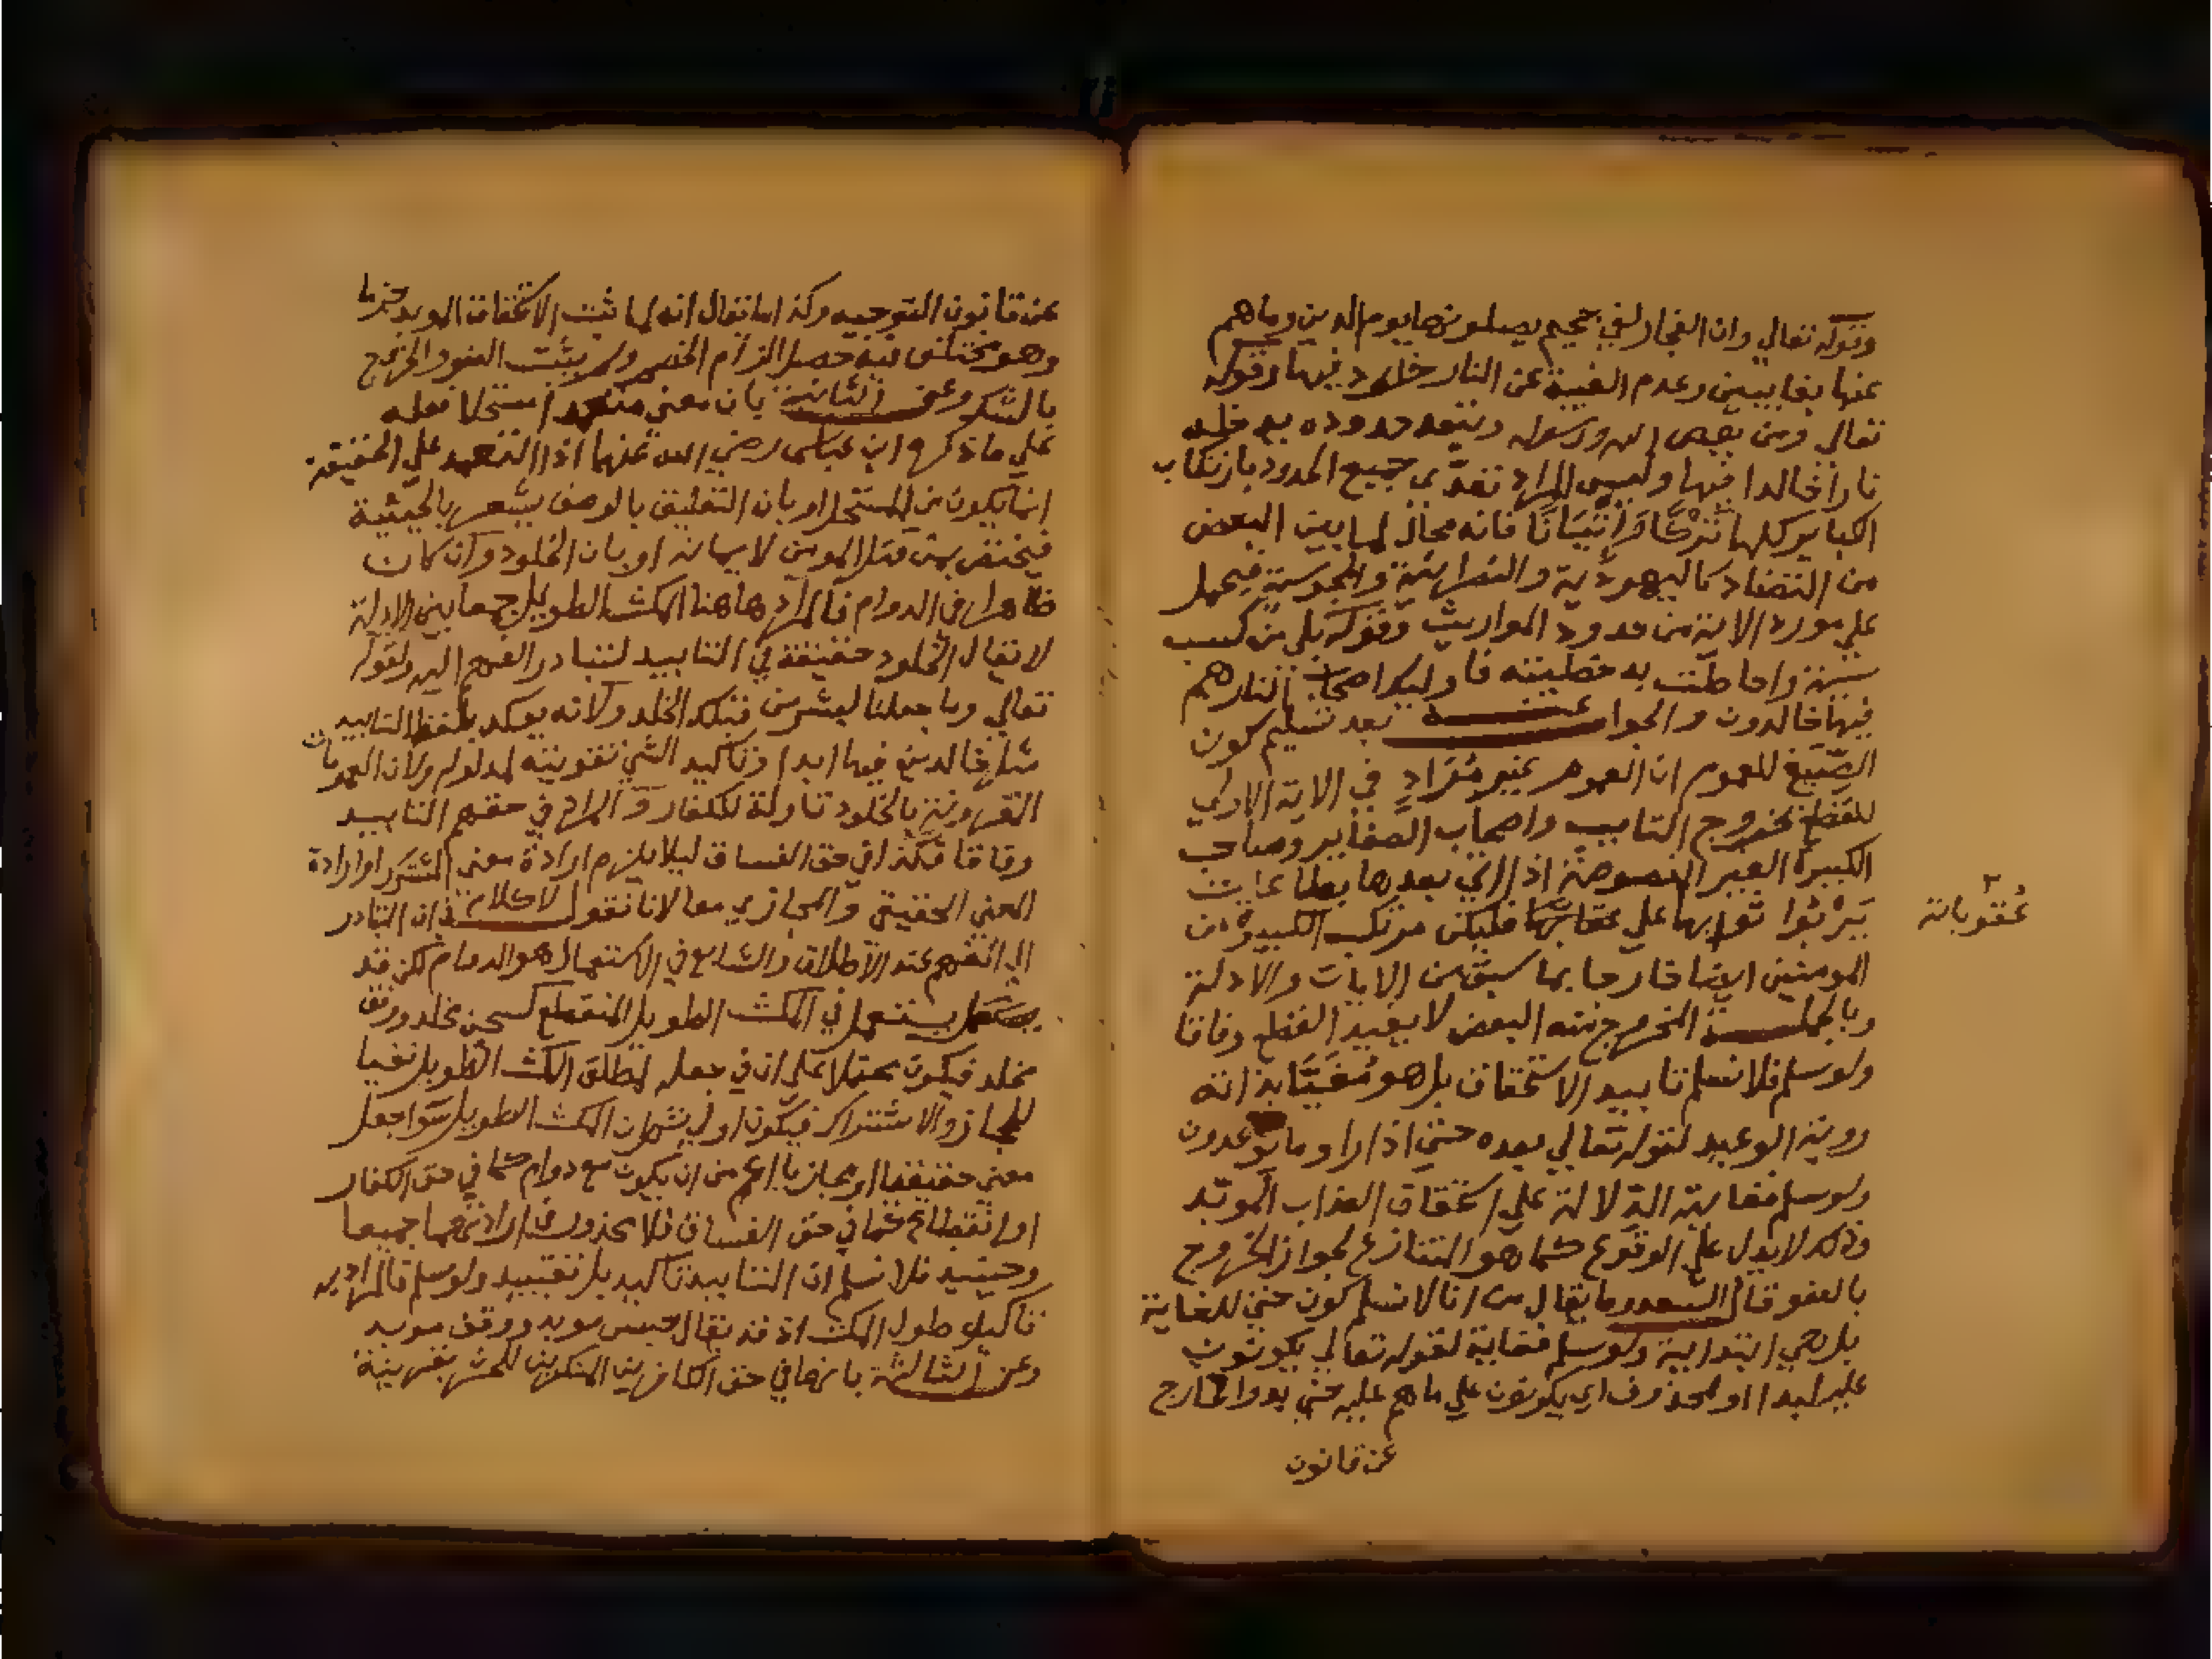 وقوله تعالي وان الفجار لفي جحيم يصلونها يوم الدين وما هم
عنها بغايبين وعدم الغيبة عن النار خلود فيها وقوله
تعالي ومن يعص الله ورسوله ويتعد حدوده يدخله
نارا خالدا فيها وليس المراد تعدّي جميع الحدود بارتكاب
الكباير كلها تركا واتيانا فانه محال لما بين البعض
من التضاد كاليهودية والنصرانية والمجوسية فيحمل
علي مورد الاية من حدود المواريث وقوله بلي من كسب
سيئة واحاطت به خطيئته فاوليك اصحاب النار هم
فيها خالدون والجواب عنه بعد تسليم كون
الصّيَغ للعموم ان العموم غير مُرَادٍ في الاية الاولي
للقطع بخروج التايب واصحاب الصّغاير وصاحب
الكبيرة الغير المنصوصة اذا اتي بعدها بطاعات
يَرْبُوا ثوابها علي عقابها فليكن مرتكب الكبيرة من
عُقوباته
المومنين ايضا خارجا بما سبق من الايات والادلة
وبالجملة المخروج منه البعض لا يفيد القطع وفاقا
ولو سلم فلا نسلم تابيد الاستحقاق بل هو مُغَيَّا بذاته
روية الوعيد لقوله تعالي بعده حتي اذا راوا ما يوعدون
ولو سلم فغايته الدّلالة علي استحقاق العذاب الموبّد
وذلك لا يدل علي الوقوع كما هو المتنازع لجواز الخروج
بالعفو قال السعد وما يقال من انا لا نسلم كون حتي للغاية
بل هي ابتدائية ولو سلم فغاية لقوله تعالي يكونون
عليه لبدا او لمحذوف اي يكونون علي ما هم عليه حتي يروا خارج
عن قانون
عن قانون التوجيه وكذا ما يقال انه لما ثبت الاستحقاق الموبد جزما
وهو مختلف فيه حصل الزام الخصم ولم يثبت العفو والخروج
بالشك وعن الثانية بان معني متعمدا مستحلا فعله
علي ما ذكره ابن عباس رضي الله عنهما اذ التعمد علي الحقيقة
انما يكون من المستحل او بان التعليق بالوصف يشعر بالحيثية
فيختص بمن قتل المومن لايمانه او بان الخلود وان كان
ظاهرا في الدوام فالمراد هاهنا المكث الطويل جمعا بين الادلة
لا يقال الخلود حقيقة في التابيد لتبادر الفهم اليه ولقوله
تعالي وما جعلنا لبشر من قبلك الخلد ولانه يوكد بلفظ التابيد
مثل خالدين فيها ابدا وتاكيد الشي تقويته لمدلوله ولان العمومات
المقرونة بالخلود تناولة للكفار والمراد في حقهم التابيد
وفاقا فكذا في حق الفساق ليلا يلزم ارادة معني المشترك او ارادة
المعني الحقيقي والمجازي معا لانا نقول لا كلام في ان التبادر
الي الفهم عند الاطلاق والشايع في الاستعمال هو الدوام لكن قد
يستعمل في المكث الطويل المنقطع كسجن مخلد ووقف
مخلد فيكون محتملا علي ان في جعله لمطلق المكث الطويل نفيا
للمجاز والاشتراك فيكون اولي ثم ان المكث الطويل سوا جعل
معني حقيقيا او مجازيا اعم من ان يكون مع دوام كما في حق الكفار
او انقطاع كما في حق الفساق فلا محذور في ارادتهما جميعا
وحينيد فلا نسلم ان التابيد تاكيد بل تقييد ولو سلم فالمراد به
تاكيد طول المكث اذ قد يقال حبس موبد ووقف موبد
وعن الثالثة بانها في حق الكافرين المنكرين للحشر بقرينة